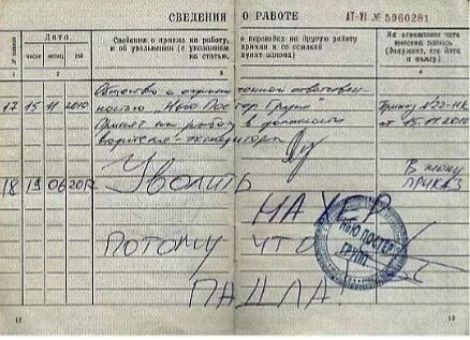 СВЕДЕНИЯ О РАБОТЕ
АТ-VI № 5960281
№ записи
Дата
число
месяц
год
Сведения о приеме на работу, о переводах на другую работу
и об увольнении (с указанием причин и со ссылкой
на статью, пункт закона)
На основании чего
внесена запись
(документ, его дата
и номер)
1 2 3 4
Общество с ограниченной ответствен-
ностью „Нью Постер Групп"
17 15 11 2010 Принят на работу в должности
водителя-экспедитора
Приказ №22-НК
от 15.11.2010
18 19 06 2012 Уволить
В жопу
ПРИКАЗ
НАХЕР
ПОТОМУ ЧТО
ПАДЛА!
НЬЮ ПОСТЕР
ГРУПП
12
13